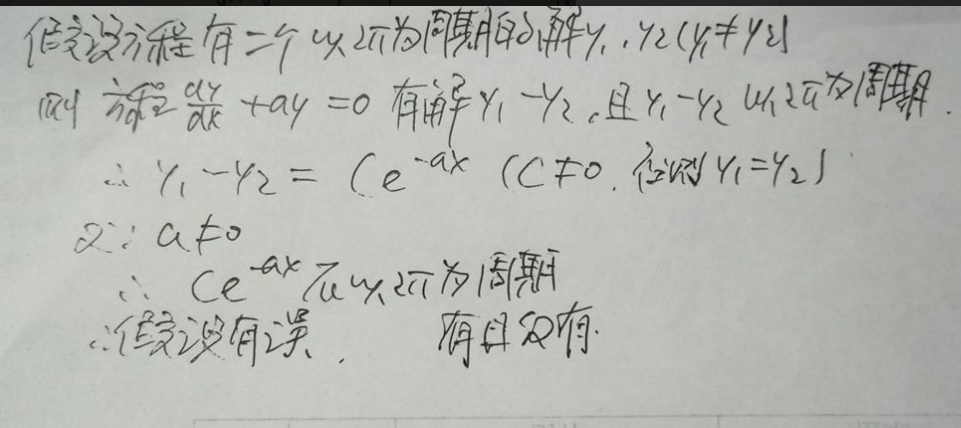 假设方程有二个以2π为周期的解y₁，y₂(y₁≠y₂)
则 方程dy/dx+ay=0 有解y₁-y₂，且y₁-y₂以2π为周期.
∴ y₁-y₂=Ce^(-ax) (C≠0，否则y₁=y₂)
又∵ a≠0
∴ Ce^(-ax)不以2π为周期
∴假设有误， 有且仅有.